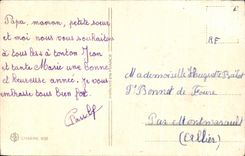 Papa, maman, petite sœur
et moi nous vous souhaitons
à tous les à tonton Jean
et tante Marie une bonne
et heureuse année. Je vous
embrasse tous bien fort.
RF
Mademoiselle Huguette
St Bonnet de Four
Par Montmarault
(Allier)